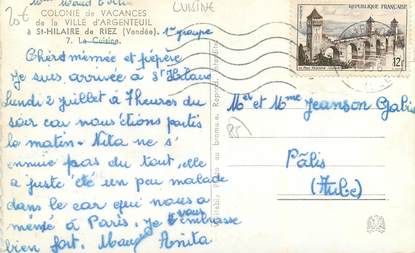 25€
CUISINE
COLONIE de VACANCES
de la VILLE d'ARGENTEUIL
à St-HILAIRE de RIEZ (Vendée)
7. La Cuisine.
1er groupe
Chers mémée et pépère
Je suis arrivée à St Hilaire
lundi 2 juillet à 7 heures du
soir car nous étions partis
le matin. Nita ne s'
ennuie pas du tout, elle
a juste été un peu malade
dans le car qui nous a
mené à Paris. Je vous embrasse
bien fort. Anita
REPUBLIQUE FRANÇAISE
12F
Mer et Mme Jeanson
Pâlis
(Aube)
85